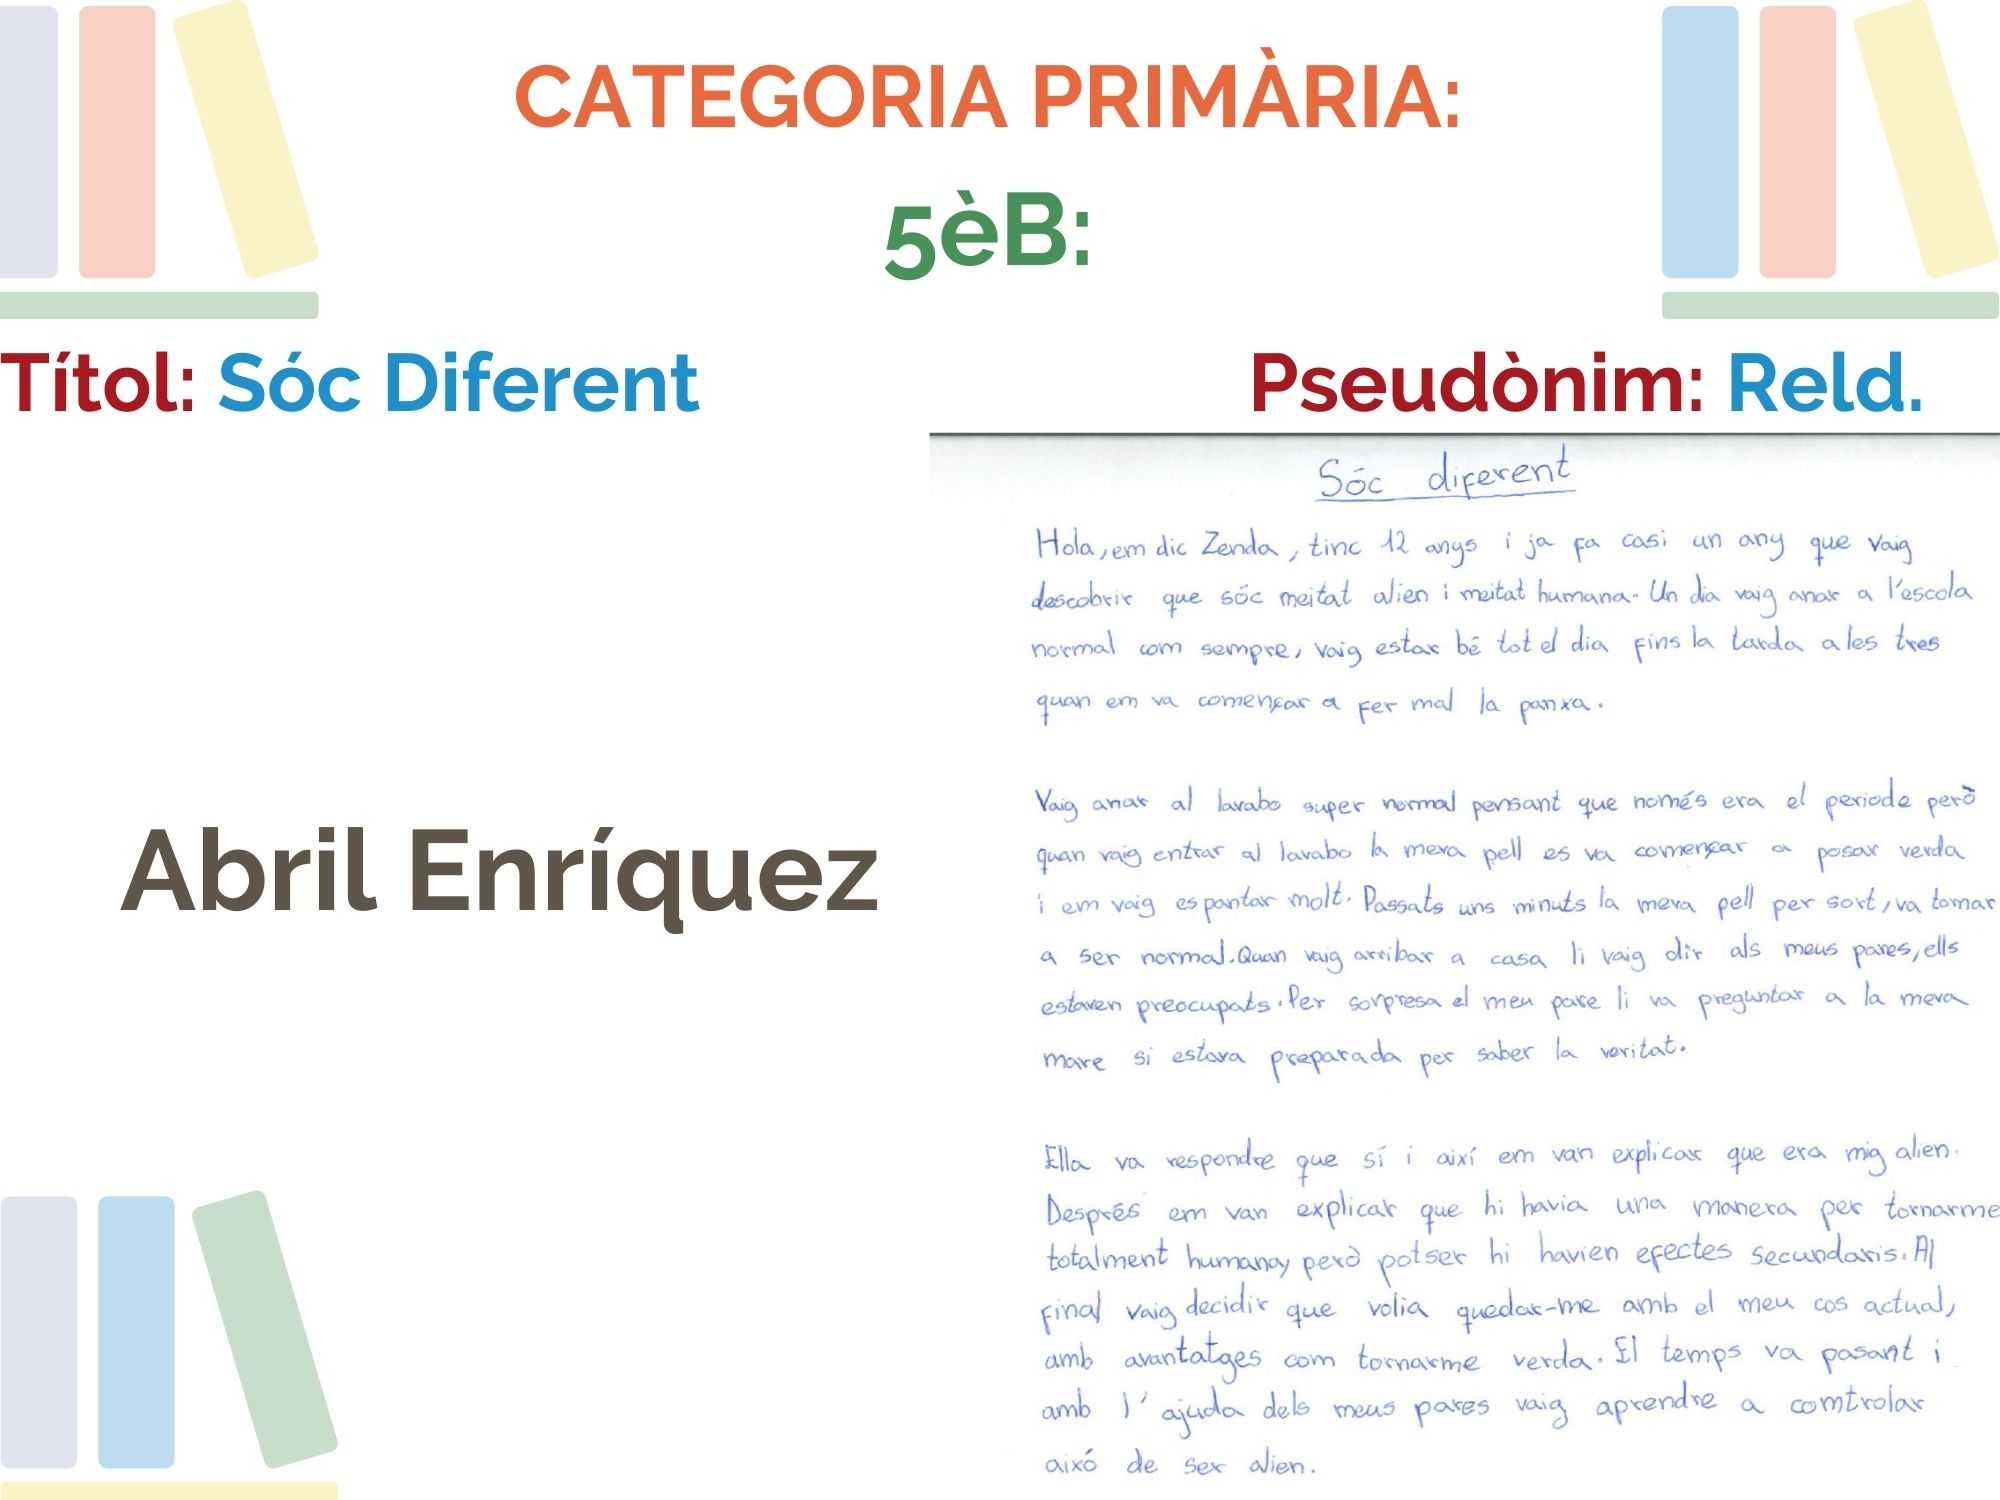 CATEGORIA PRIMÀRIA:
5èB:
Títol: Sóc Diferent
Pseudònim: Reld.
Abril Enríquez
Sóc diferent
Hola, em dic Zenda, tinc 12 anys i ja fa casi un any que vaig
descobrir que sóc meitat alien i meitat humana. Un dia vaig anar a l'escola
normal com sempre, vaig estar bé tot el dia fins la tarda a les tres
quan em va començar a fer mal la panxa.
Vaig anar al lavabo super normal pensant que només era el periode però
quan vaig entrar al lavabo la meva pell es va començar a posar verda
i em vaig espantar molt. Passats uns minuts la meva pell per sort, va tornar
a ser normal. Quan vaig arribar a casa li vaig dir als meus pares, ells
estaven preocupats. Per sorpresa el meu pare li va preguntar a la meva
mare si estava preparada per saber la veritat.
Ella va respondre que sí i així em van explicar que era mig alien.
Després em van explicar que hi havia una manera per tornarme
totalment humana, però potser hi havien efectes secundaris. Al
final vaig decidir que volia quedar-me amb el meu cos actual,
amb avantatges com tornarme verda. El temps va pasant i
amb l'ajuda dels meus pares vaig aprendre a comtrolar
aixó de ser alien.